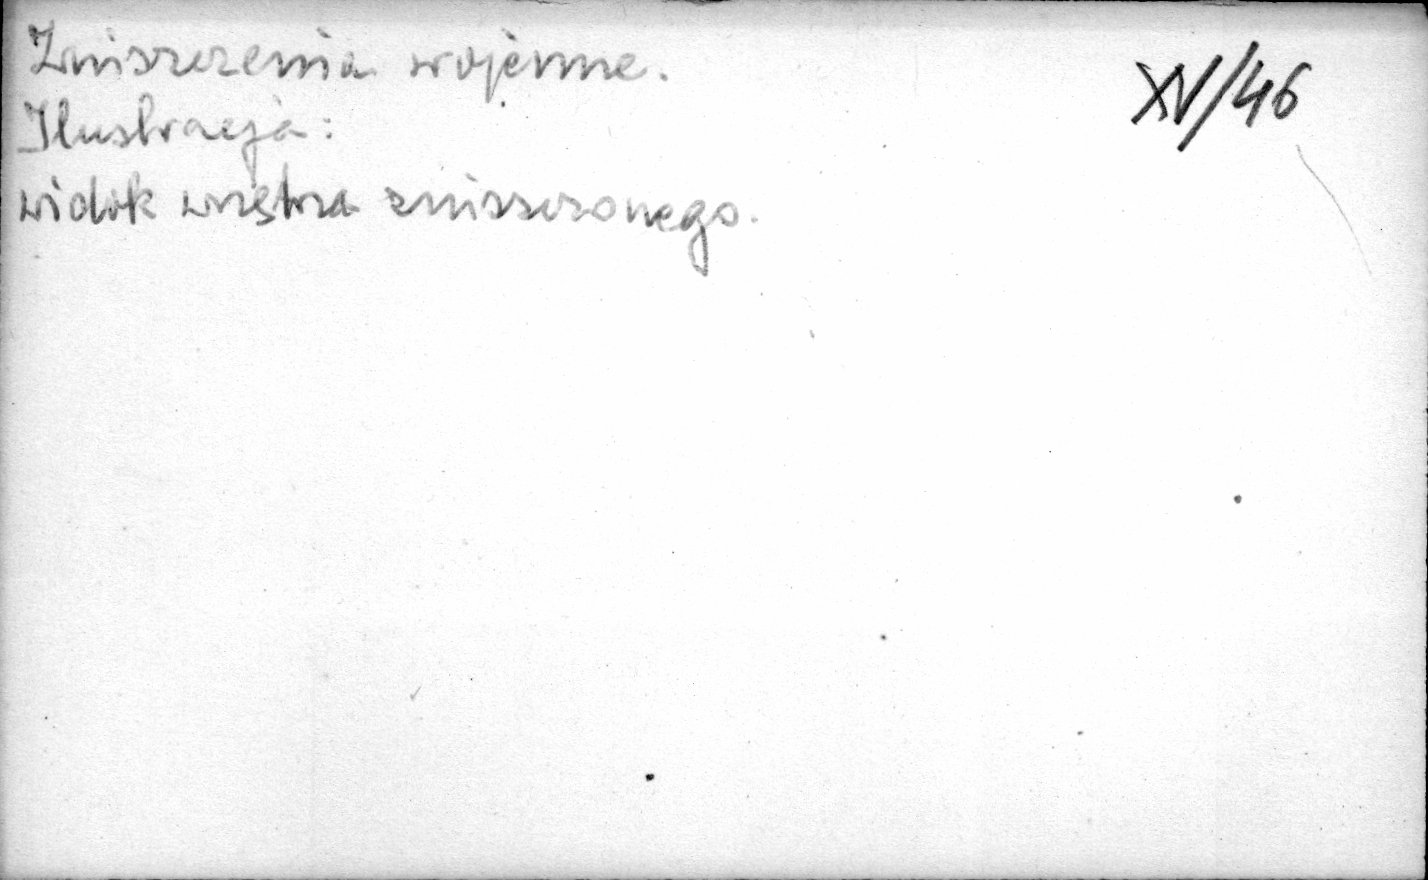 Zniszczenia wojenne.
XV/46
Ilustracja:
widok wnętrza zniszczonego.